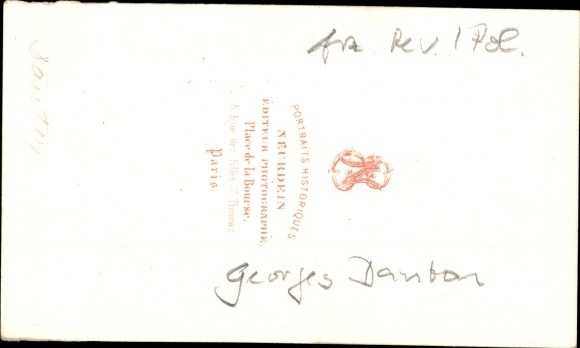 frz. Rev. / Pol.
PORTRAITS HISTORIQUES
NEURDEIN
ÉDITEUR PHOTOGRAPHE.
Place de la Bourse,
8. Rue des Filles St Thomas
Paris.
Georges Danton
Danton